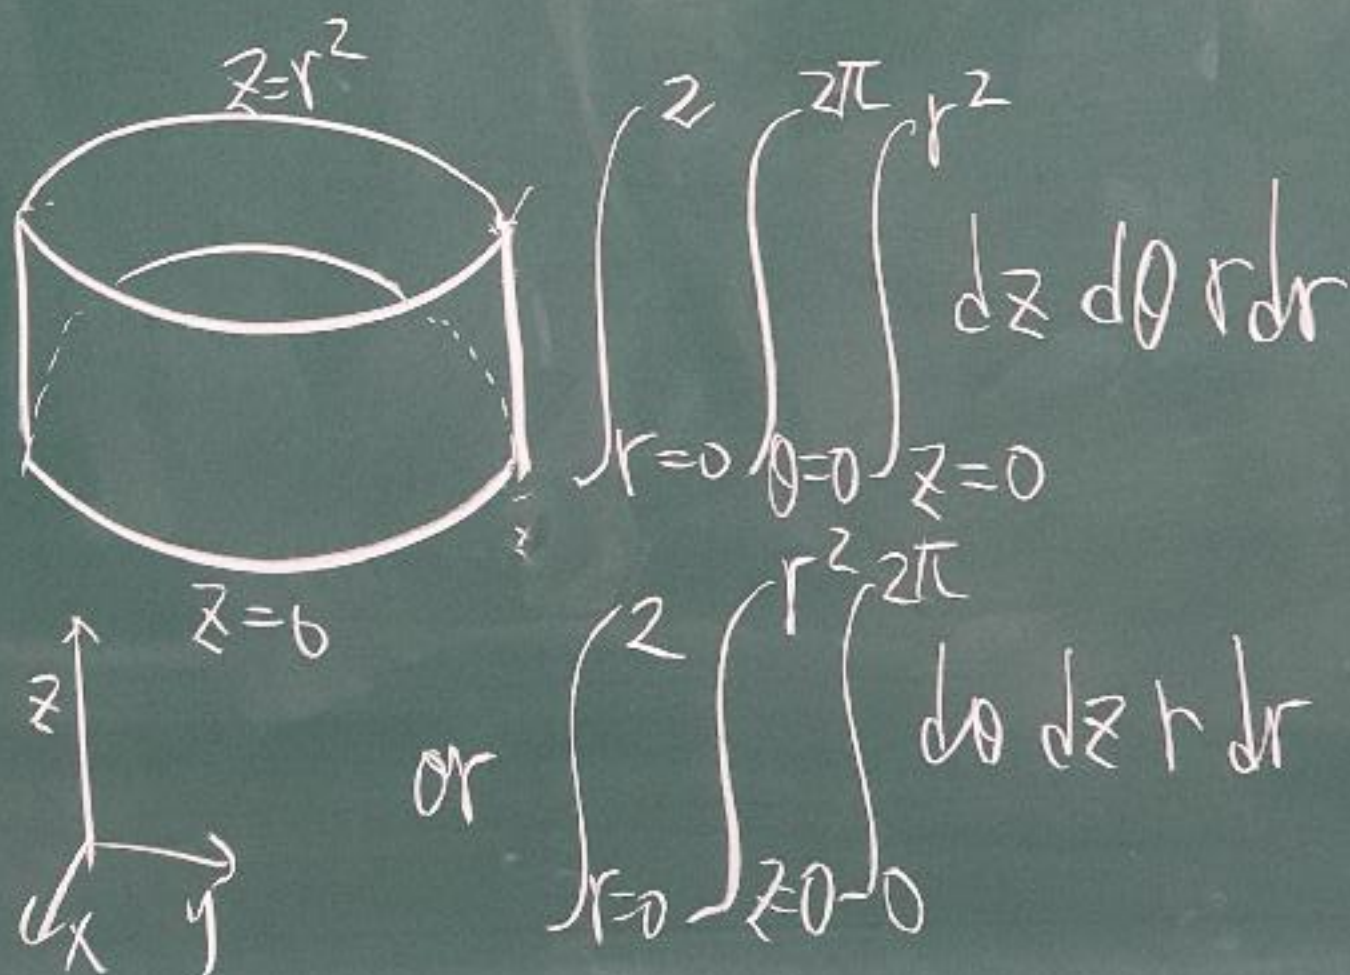 z=r²
∫_{r=0}^{2} ∫_{θ=0}^{2π} ∫_{z=0}^{r²} dz dθ r dr
z=0
z
x y
or ∫_{r=0}^{2} ∫_{z=0}^{r²} ∫_{0}^{2π} dθ dz r dr